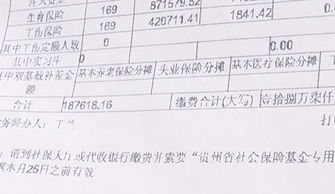 871579.52
生育保险 169 420711.41 1841.42
工伤保险 169
其中工伤定额人数 0 0.00
其中双基数补差金额 基本养老保险分摊 失业保险分摊 基本医疗保险分摊
合计 187618.16 缴费合计(大写) 壹拾捌万柒仟
务经办人: 丁兰
:请到社保大厅或代收银行缴费并索要"贵州省社会保险基金专用
本月25日之前有效